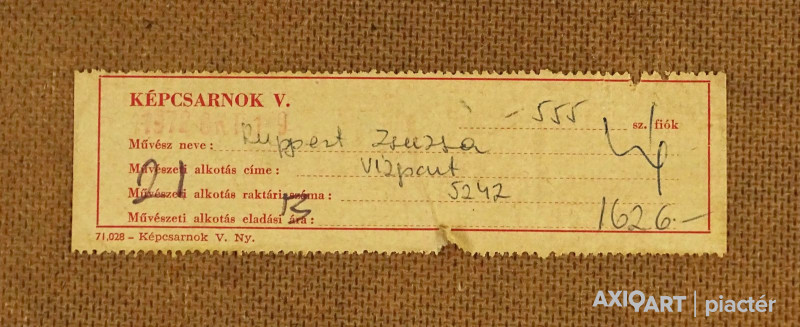 KÉPCSARNOK V.
- 555 sz. fiók
Művész neve: Ruppert Zsuzsa
Művészeti alkotás címe: Vízpart
21
Művészeti alkotás raktáriszáma: 5242
Művészeti alkotás eladási ára: 1626.-
71.028 - Képcsarnok V. Ny.
AXIOART | piactér